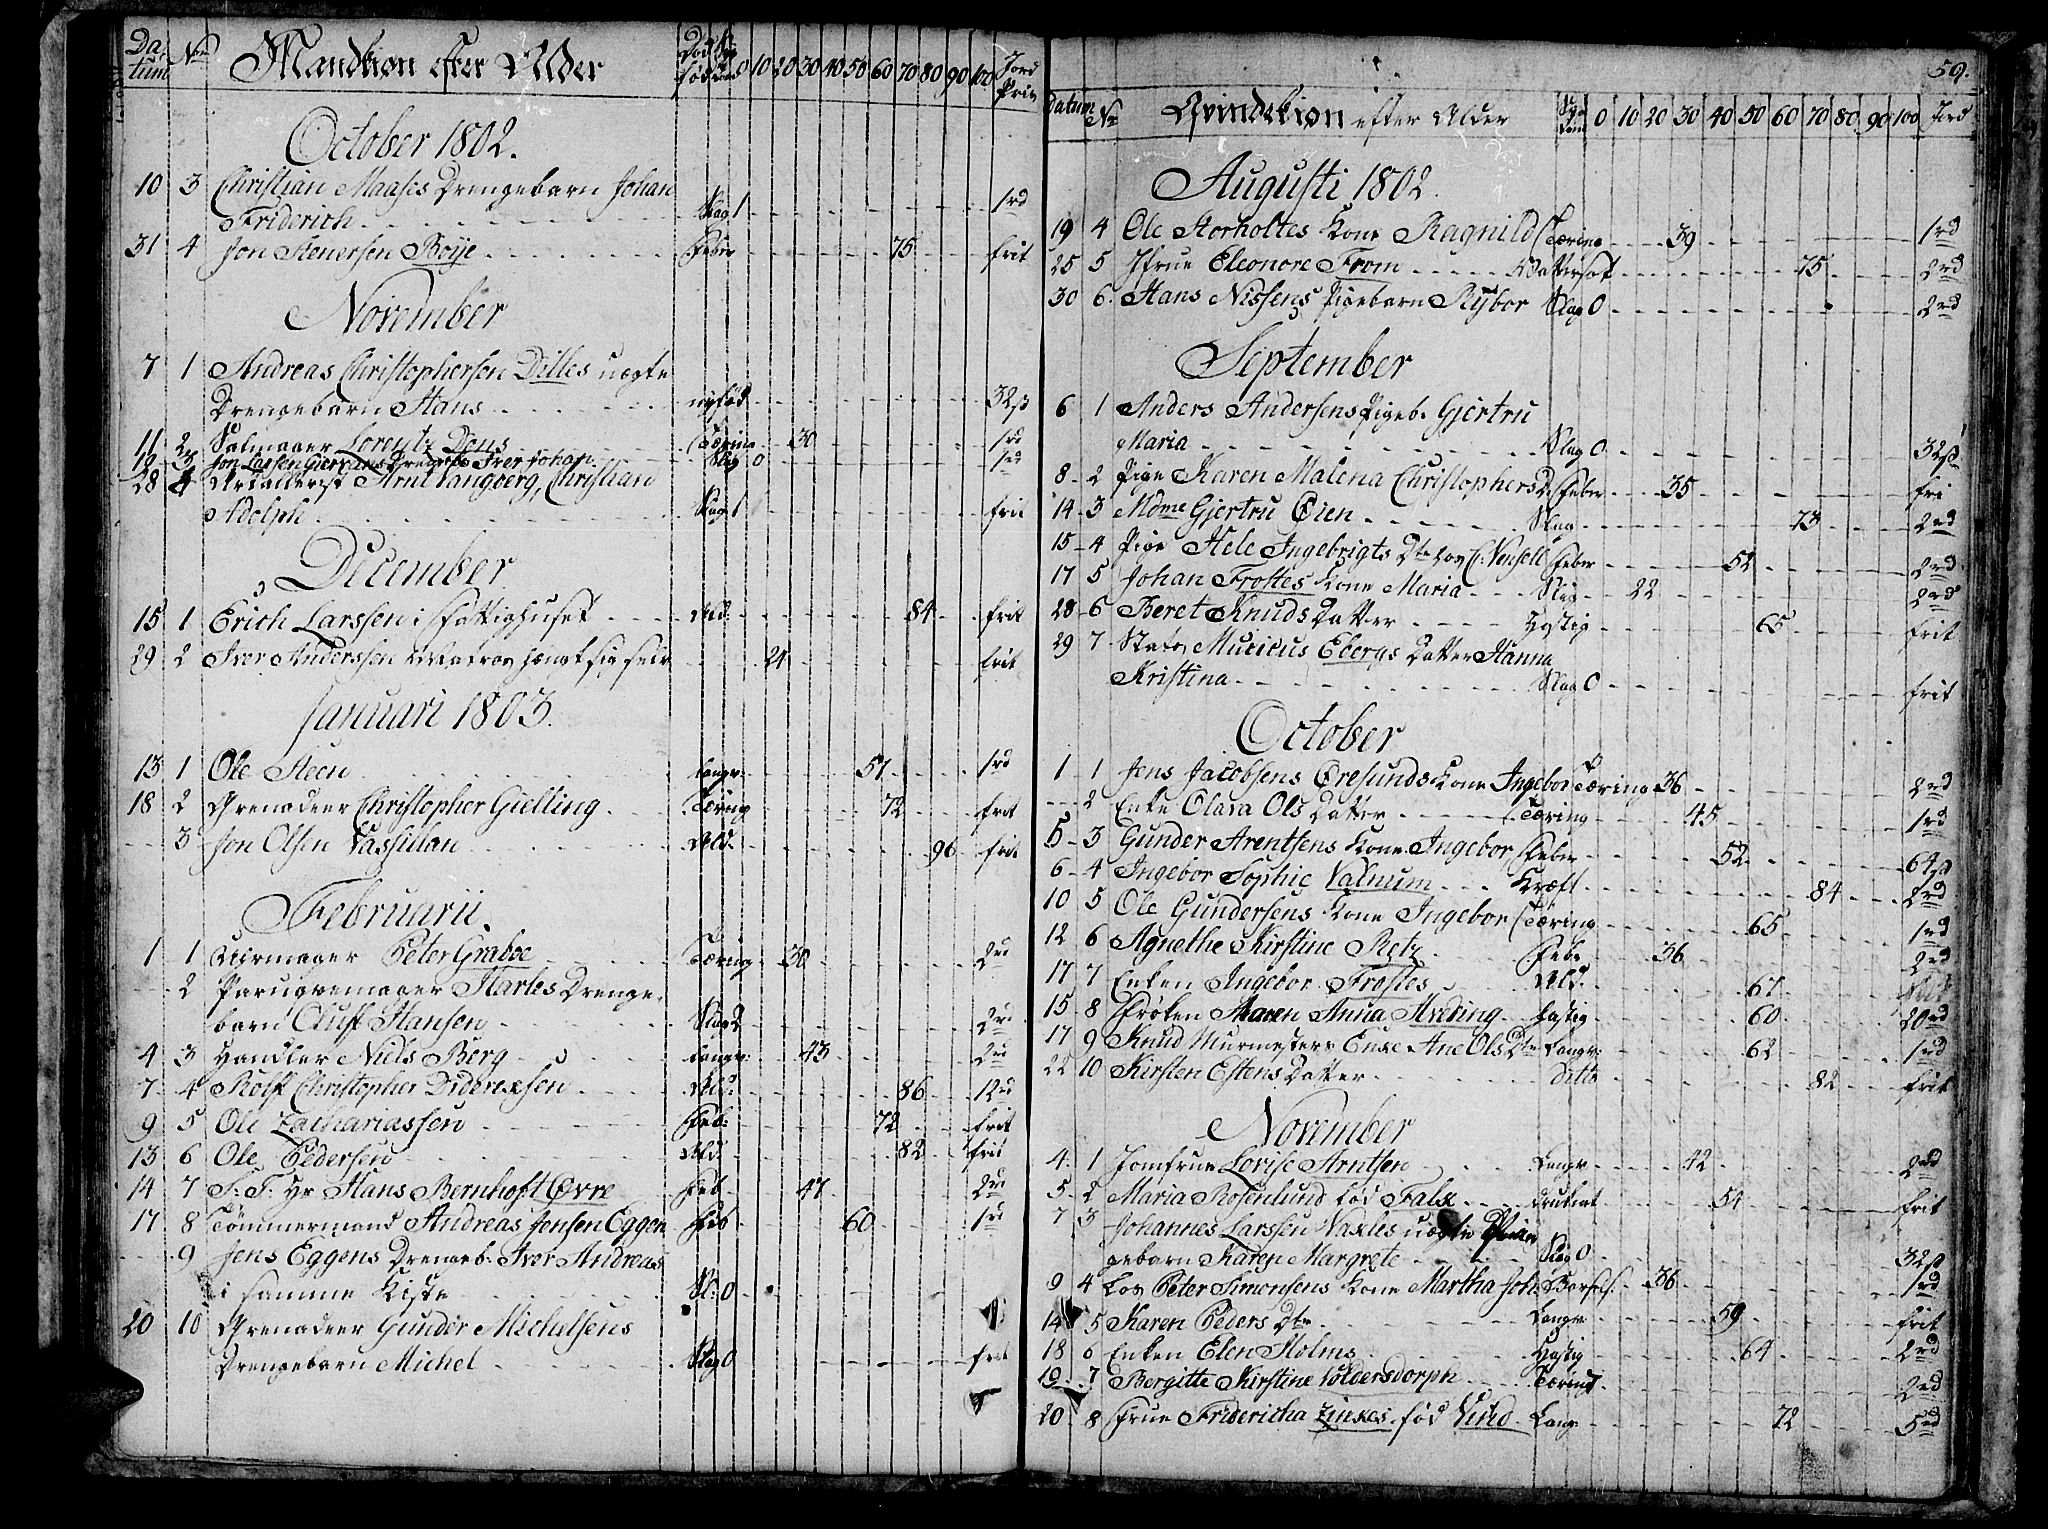 Da,
tum No Mandkiøn efter Alder 0 10 20 30 40 50 60 70 80 90 100 Jord
October 1802.
10 3 Christian Maases Drengebarn Johan
Friderich Slag 1 1 rd
31 4 Jon Stenersen Boye Feber 75 frit
November
7 1 Andreas Christophersen Dilles uægte
Drengebarn Hans nyfød 32 ß
11 2 Lorentz Dens Tæring 30 1 rd
12 3 Jon Larsen Drengeb. Iver Johan Slag 0 1 rd
28 4 Arnt Vangberg, Christian
Adolph Slag 1 frit
December
15 1 Erich Larssen i Fattighuset Ald. 84 frit
29 2 Iver Anderssen Matros hængt sig selv 24 frit
Januari 1803.
13 1 Ole Steen Langv. 57 1 rd
18 2 Grenadeer Christopher Gielling Tæring 72 frit
3 Jon Olsen Vassillan Ald. 96 frit
Februarii.
1 1 Uhrmager Peter Grabbe Tæring 30 2 rd
2 Parugvemager Harles Drenge,
barn Clust Hansen Slag 2 2 rd
4 3 Handler Niels Berg Langv: 43 2 rd
7 4 Rolff Christopher Diderexsen Ald. 86 12 rd
9 5 Ole Zachariassen Feb: 72 frit
13 6 Ole Pedersen Ald: 82 frit
14 7 S: T: Hr Hans Bernhoft Øvre Feb 47 2 rd
17 8 Tømmermand Andreas Jensen Eggen Feb 60 1 rd
9 Jens Eggens Drengeb: Iver Andreas
i samme Kiste Sl: 0
20 10 Grenadeer Gunder Michelsens
Drengebarn Michel Slag 0 frit
59.
Datum No Qvindekiøn efter Alder 0 10 20 30 40 50 60 70 80 90 100 Jord
Augusti 1802.
19 4 Ole Storholtes Kone Ragnild Tæring 39 1 rd
25 5 Jfrue Eleonore From Vattersot 75 2 rd
30 6. Hans Nissens Pigebarn Rybor Slag 0 2 rd
September
6 1 Anders Andersens Pigeb. Giertru
Maria Slag 0 32 ß
8 2 Pige Karen Malena Christophers D. Feber 35 fri
14 3 Mdme Gjertru Øien Slag 73 2 rd
15 4 Pige Hele Ingebrigts Dtr hos C. Vensell Feber 52 2 rd
17 5 Johan Frostes Kone Maria 22 2 rd
28 6 Beret Knuds Datter Hastig 65 frit
29 7 Mucicus Ebergs Datter Hanna
Kristina Slag 0 frit
October
1 1 Jens Jacobsens Øresunds Kone Ingebor Tæring 36 2 rd
2 Enke Olava Ols Datter Tæring 45 1 rd
5 3 Gunder Arentsens Kone Ingebor Feber 52 64 ß
6 4 Ingebor Sophie Valnum Kræft 84 2 rd
10 5 Ole Gundersens Kone Ingebor Tæring 65 1 rd
12 6 Agnethe Kirstine Retz Febe 36 2 rd
17 7 Enken Ingebor Frostes Ald. 67
15 8 Frøken Maren Anna Hveding Hastig 60 20 rd
17 9 Knud Murmesters Enke Ane Ols Dtr Langv: 62 1 rd
22 10 Kirsten Estens Datter ditto 82 frit
November
4. 1 Jomfrue Lovise Arntsen Langv 42 2 rd
5. 2 Maria Rosenlund fød Falx Druknet 54 frit
7 3 Johannes Larssen Vaxles uægte Pi
gebarn Karen Margrete Slag 0 32 ß
9 4 Los Peter Simonsens Kone Martha Joh. Barsels. 36 1 rd
14 5 Karen Peders Dtr Langv 59 frit
18 6 Enken Elen Holms Hastig 64 2 rd
19 7 Bergitte Kirstine Voldersdorph Tæring 2 rd
20 8 Frue Fridericha Zinxes fød Vind Langv 72 5 rd